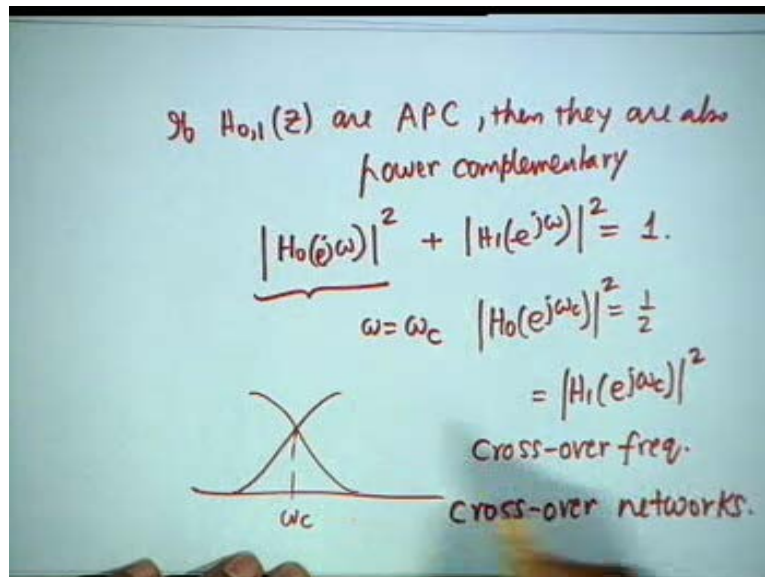 If H₀,₁(z) are APC, then they are also
power complementary
|H₀(e^jω)|² + |H₁(e^jω)|² = 1.
ω = ω_c |H₀(e^jω_c)|² = 1/2
= |H₁(e^jω_c)|²
Cross-over freq.
ω_c Cross-over networks.